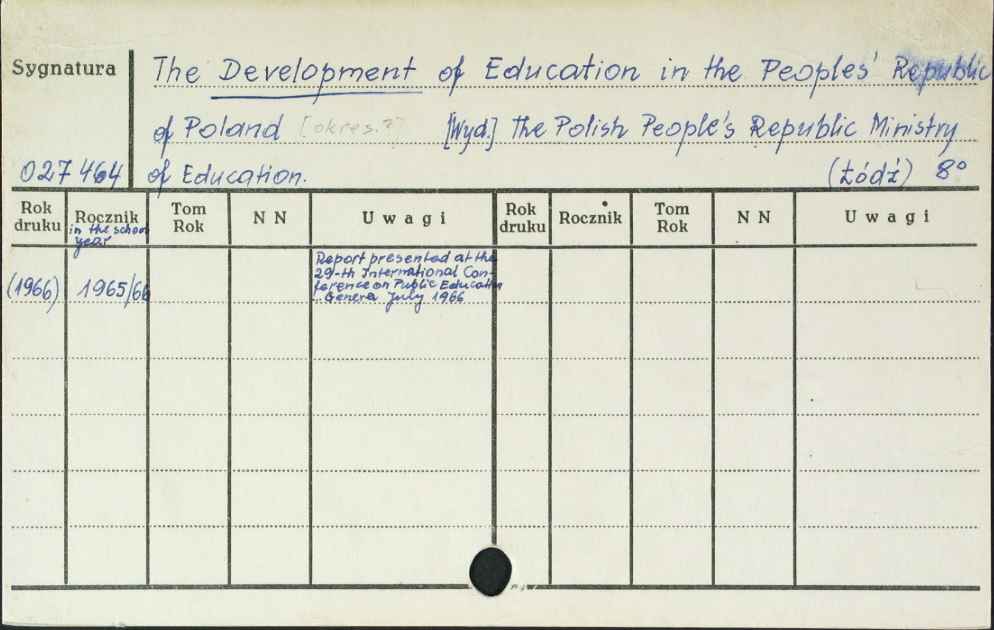 Sygnatura
The Development of Education in the Peoples' Republic
of Poland [okres.?] [Wyd.] The Polish People's Republic Ministry
027464 of Education. (Łódź) 8°
Rok druku Rocznik Tom Rok NN Uwagi Rok druku Rocznik Tom Rok NN Uwagi
in the school
year
(1966) 1965/66
Report presented at the
29-th International Con-
ference on Public Education
Genera July 1966